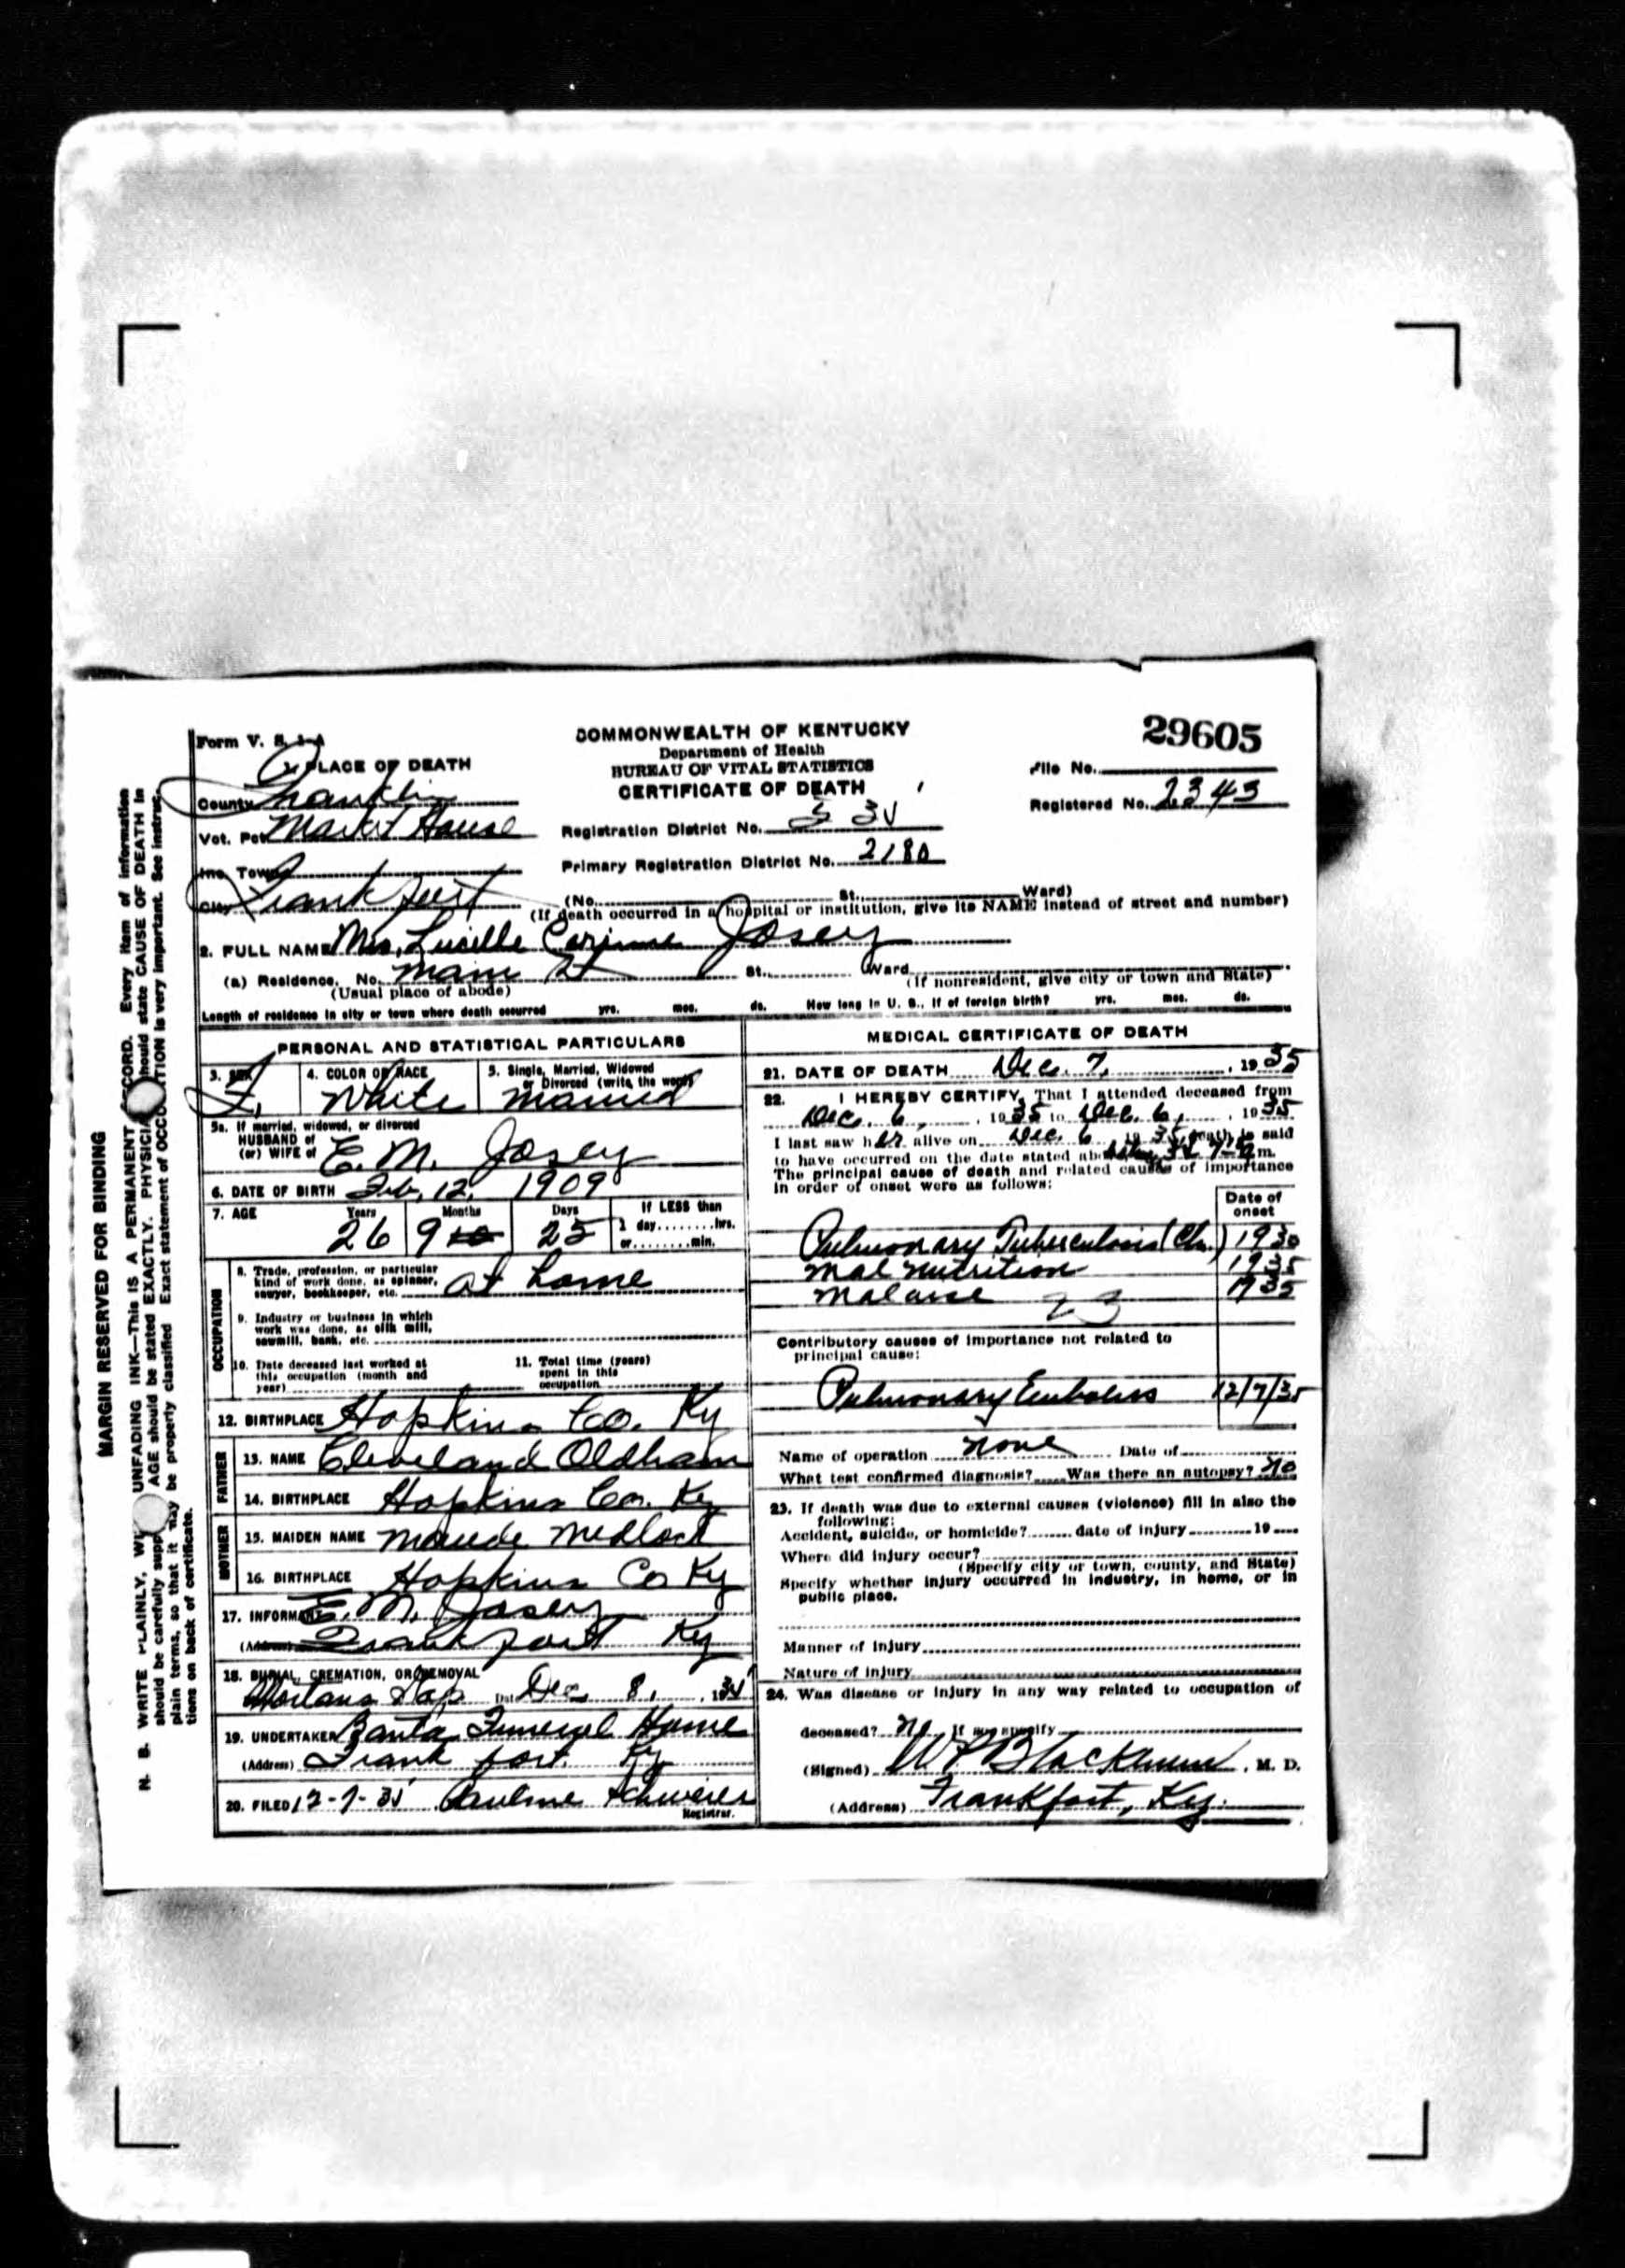 29605
Form V. S. 1-A
COMMONWEALTH OF KENTUCKY
Department of Health
BUREAU OF VITAL STATISTICS
CERTIFICATE OF DEATH
PLACE OF DEATH
File No.
County Franklin
Registered No. 2343
Vot. Pct Market House
Registration District No.
Inc. Town
Primary Registration District No. 2180
City Frankfort
(No. St. Ward)
(If death occurred in a hospital or institution, give its NAME instead of street and number)
2. FULL NAME Mrs. Lucille Corinne Josey
(a) Residence. No. Main St St. Ward
(Usual place of abode) (If nonresident, give city or town and State)
Length of residence in city or town where death occurred yrs. mos. ds. How long in U. S., if of foreign birth? yrs. mos. ds.
PERSONAL AND STATISTICAL PARTICULARS
3. SEX F.
4. COLOR OR RACE White
5. Single, Married, Widowed or Divorced (write the word) Married
5a. If married, widowed, or divorced
HUSBAND of
(or) WIFE of E. M. Josey
6. DATE OF BIRTH Feb. 12, 1909
7. AGE Years Months Days If LESS than
26 9 10 25 1 day hrs.
or min.
OCCUPATION
8. Trade, profession, or particular
kind of work done, as spinner,
sawyer, bookkeeper, etc. at home
9. Industry or business in which
work was done, as silk mill,
sawmill, bank, etc.
10. Date deceased last worked at
this occupation (month and
year)
11. Total time (years)
spent in this
occupation
12. BIRTHPLACE Hopkins Co. Ky
FATHER
13. NAME Cleveland Oldham
14. BIRTHPLACE Hopkins Co. Ky
MOTHER
15. MAIDEN NAME Maude Medlock
16. BIRTHPLACE Hopkins Co Ky
17. INFORMANT E. M. Josey
(Address) Frankfort Ky
18. BURIAL, CREMATION, OR REMOVAL
Mortons Gap Date Dec. 8, 1935
19. UNDERTAKER Banta Funeral Home
(Address) Frankfort. Ky
20. FILED 12-7-35 Pauline
Registrar.
MEDICAL CERTIFICATE OF DEATH
21. DATE OF DEATH Dec. 7, 1935
22. I HEREBY CERTIFY, That I attended deceased from
Dec. 6, 1935 to Dec. 6, 1935
I last saw her alive on Dec. 6 1935, death is said
to have occurred on the date stated m.
The principal cause of death and related causes of importance
in order of onset were as follows:
Date of
onset
Pulmonary Tuberculosis (Ch.) 1930
Mal nutrition 1935
Malaise 1935
23
Contributory causes of importance not related to
principal cause:
Pulmonary Embolus 12/7/35
Name of operation none Date of
What test confirmed diagnosis? Was there an autopsy? No
23. If death was due to external causes (violence) fill in also the
following:
Accident, suicide, or homicide? date of injury 19
Where did injury occur?
(Specify city or town, county, and State)
Specify whether injury occurred in industry, in home, or in
public place.
Manner of injury
Nature of injury
24. Was disease or injury in any way related to occupation of
deceased? No If so specify
(Signed) , M. D.
(Address) Frankfort, Ky.
MARGIN RESERVED FOR BINDING
N. B. WRITE PLAINLY, UNFADING INK—This IS A PERMANENT RECORD. Every item of information
should be carefully supp AGE should be stated EXACTLY. PHYSICIA should state CAUSE OF DEATH in
plain terms, so that it may be properly classified Exact statement of OCCUPATION is very important. See instruc-
tions on back of certificate.